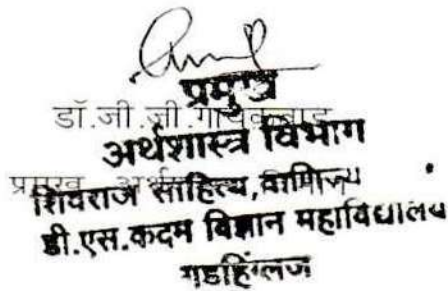 प्रमुख
डॉ.जी.जी.गायकवाड
अर्थशास्त्र विभाग
प्रमुख, अर्थ
शिवराज साहित्य,वाणिज्य
डी.एस.कदम विज्ञान महाविद्यालय
गडहिंग्लज